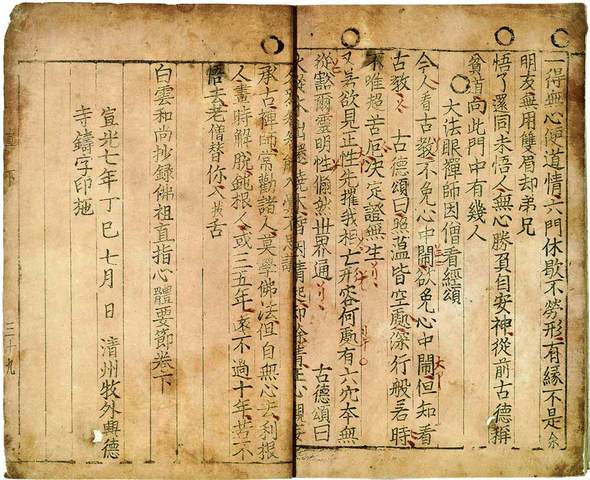 一得無心便道情六門休歇不勞形有緣不是余
朋友無用雙眉却弟兄
悟了還同未悟人無心勝負自安神從前古德稱
貧道向此門中有幾人
大法眼禪師因僧看經頌
今人看古教不免心中鬧欲免心中鬧但知看
古教 古德頌曰照蘊皆空處深行般若時
不唯超苦厄決定證無生
又若欲見正性先摧我相亡形容何處有六穴本無
從豁爾靈明性翛然世界通 古德頌曰
火從木出還燒木智因情起却除情
承古禪師常勸諸人莫學佛法但自無心去利根
人晝時解脫鈍根人或三五年遠不過十年若不
悟去老僧替你入拔舌
白雲和尚抄錄佛祖直指心體要節卷下
宣光七年丁巳七月 日 清州牧外興德
寺鑄字印施
直下 三十九